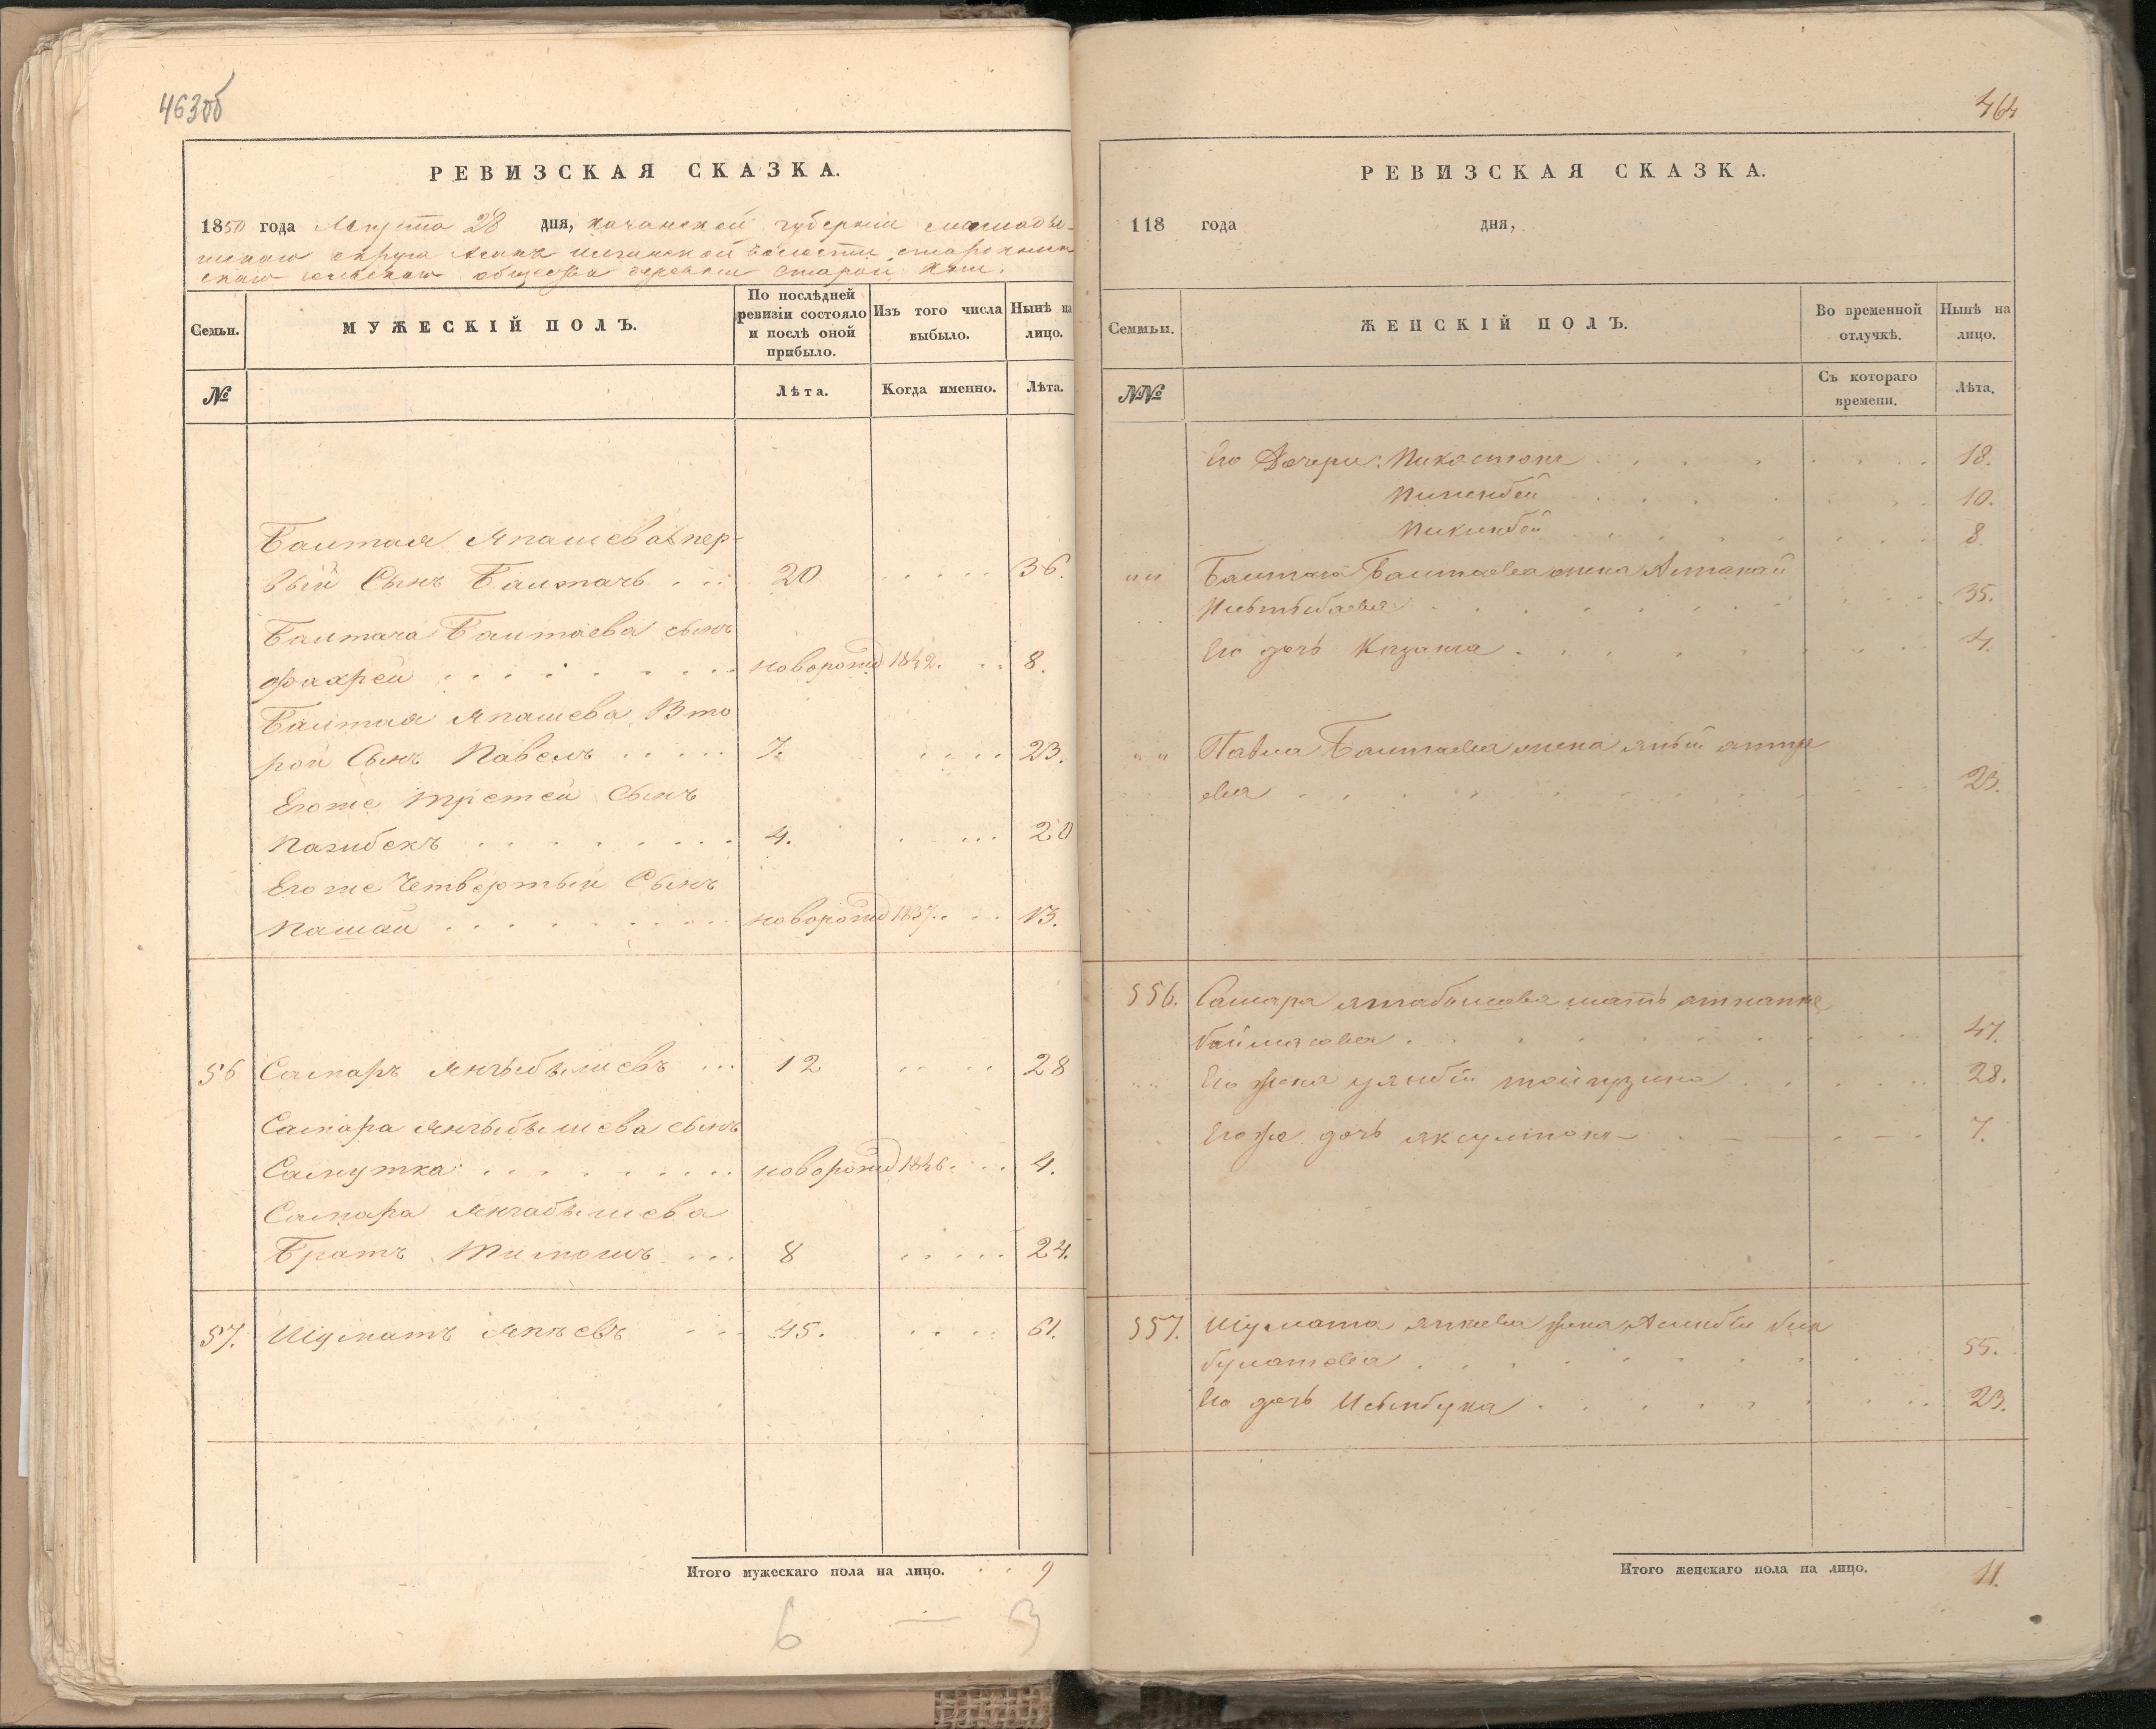 463об
РЕВИЗСКАЯ СКАЗКА.
1850 года Августа 28 дня, Казанской губернии Мамады-
шскаго округа волости
скаго сельскаго общества деревни Старой
Семьи.
МУЖЕСКІЙ ПОЛЪ.
По послѣдней ревизіи состояло и послѣ оной прибыло.
Изъ того числа выбыло.
Нынѣ на лицо.
№
Лѣта.
Когда именно.
Лѣта.
Баитая Япашева пер-
вый Сынъ Баитачь 20 36.
Баитача Баитаева сынъ
Фахрей новорожд 1842. 8.
Баитая Япашева Вто
рой Сынъ Павелъ 7. 23.
Егоже Третей Сынъ
Пазибекъ 4. 20
Егоже Четвертый Сынъ
Пашай новорожд 1837. 13.
56 Самаръ Янгыбышевъ 12 28
Самара Янгыбышева сынъ
Самутка новорожд 1846. 4.
Самара Янгабышева
Братъ Тимошъ 8 24.
57. Шуматъ Япѣевъ 45. 61.
Итого мужескаго пола на лицо. 9
6 — 3
464
РЕВИЗСКАЯ СКАЗКА.
118 года дня,
Семмьи.
ЖЕНСКІЙ ПОЛЪ.
Во временной отлучкѣ.
Нынѣ на лицо.
№№
Съ котораго времени.
Лѣта.
Его Дочери: Пикастона 18.
Пиченбей 10.
Пикинбей 8.
"" Баитача Баитаева жена Алтанай
35.
Его дочь Казанга 4.
"" Павла Баитаева жена
ева 23.
556. Самара Янгабышева мать
47.
Его жена 28.
Егоже дочь Яксултона 7.
557. Шумата Япкева жена
булатова 55.
Его дочь Исынбука 23.
Итого женскаго пола на лицо. 11.